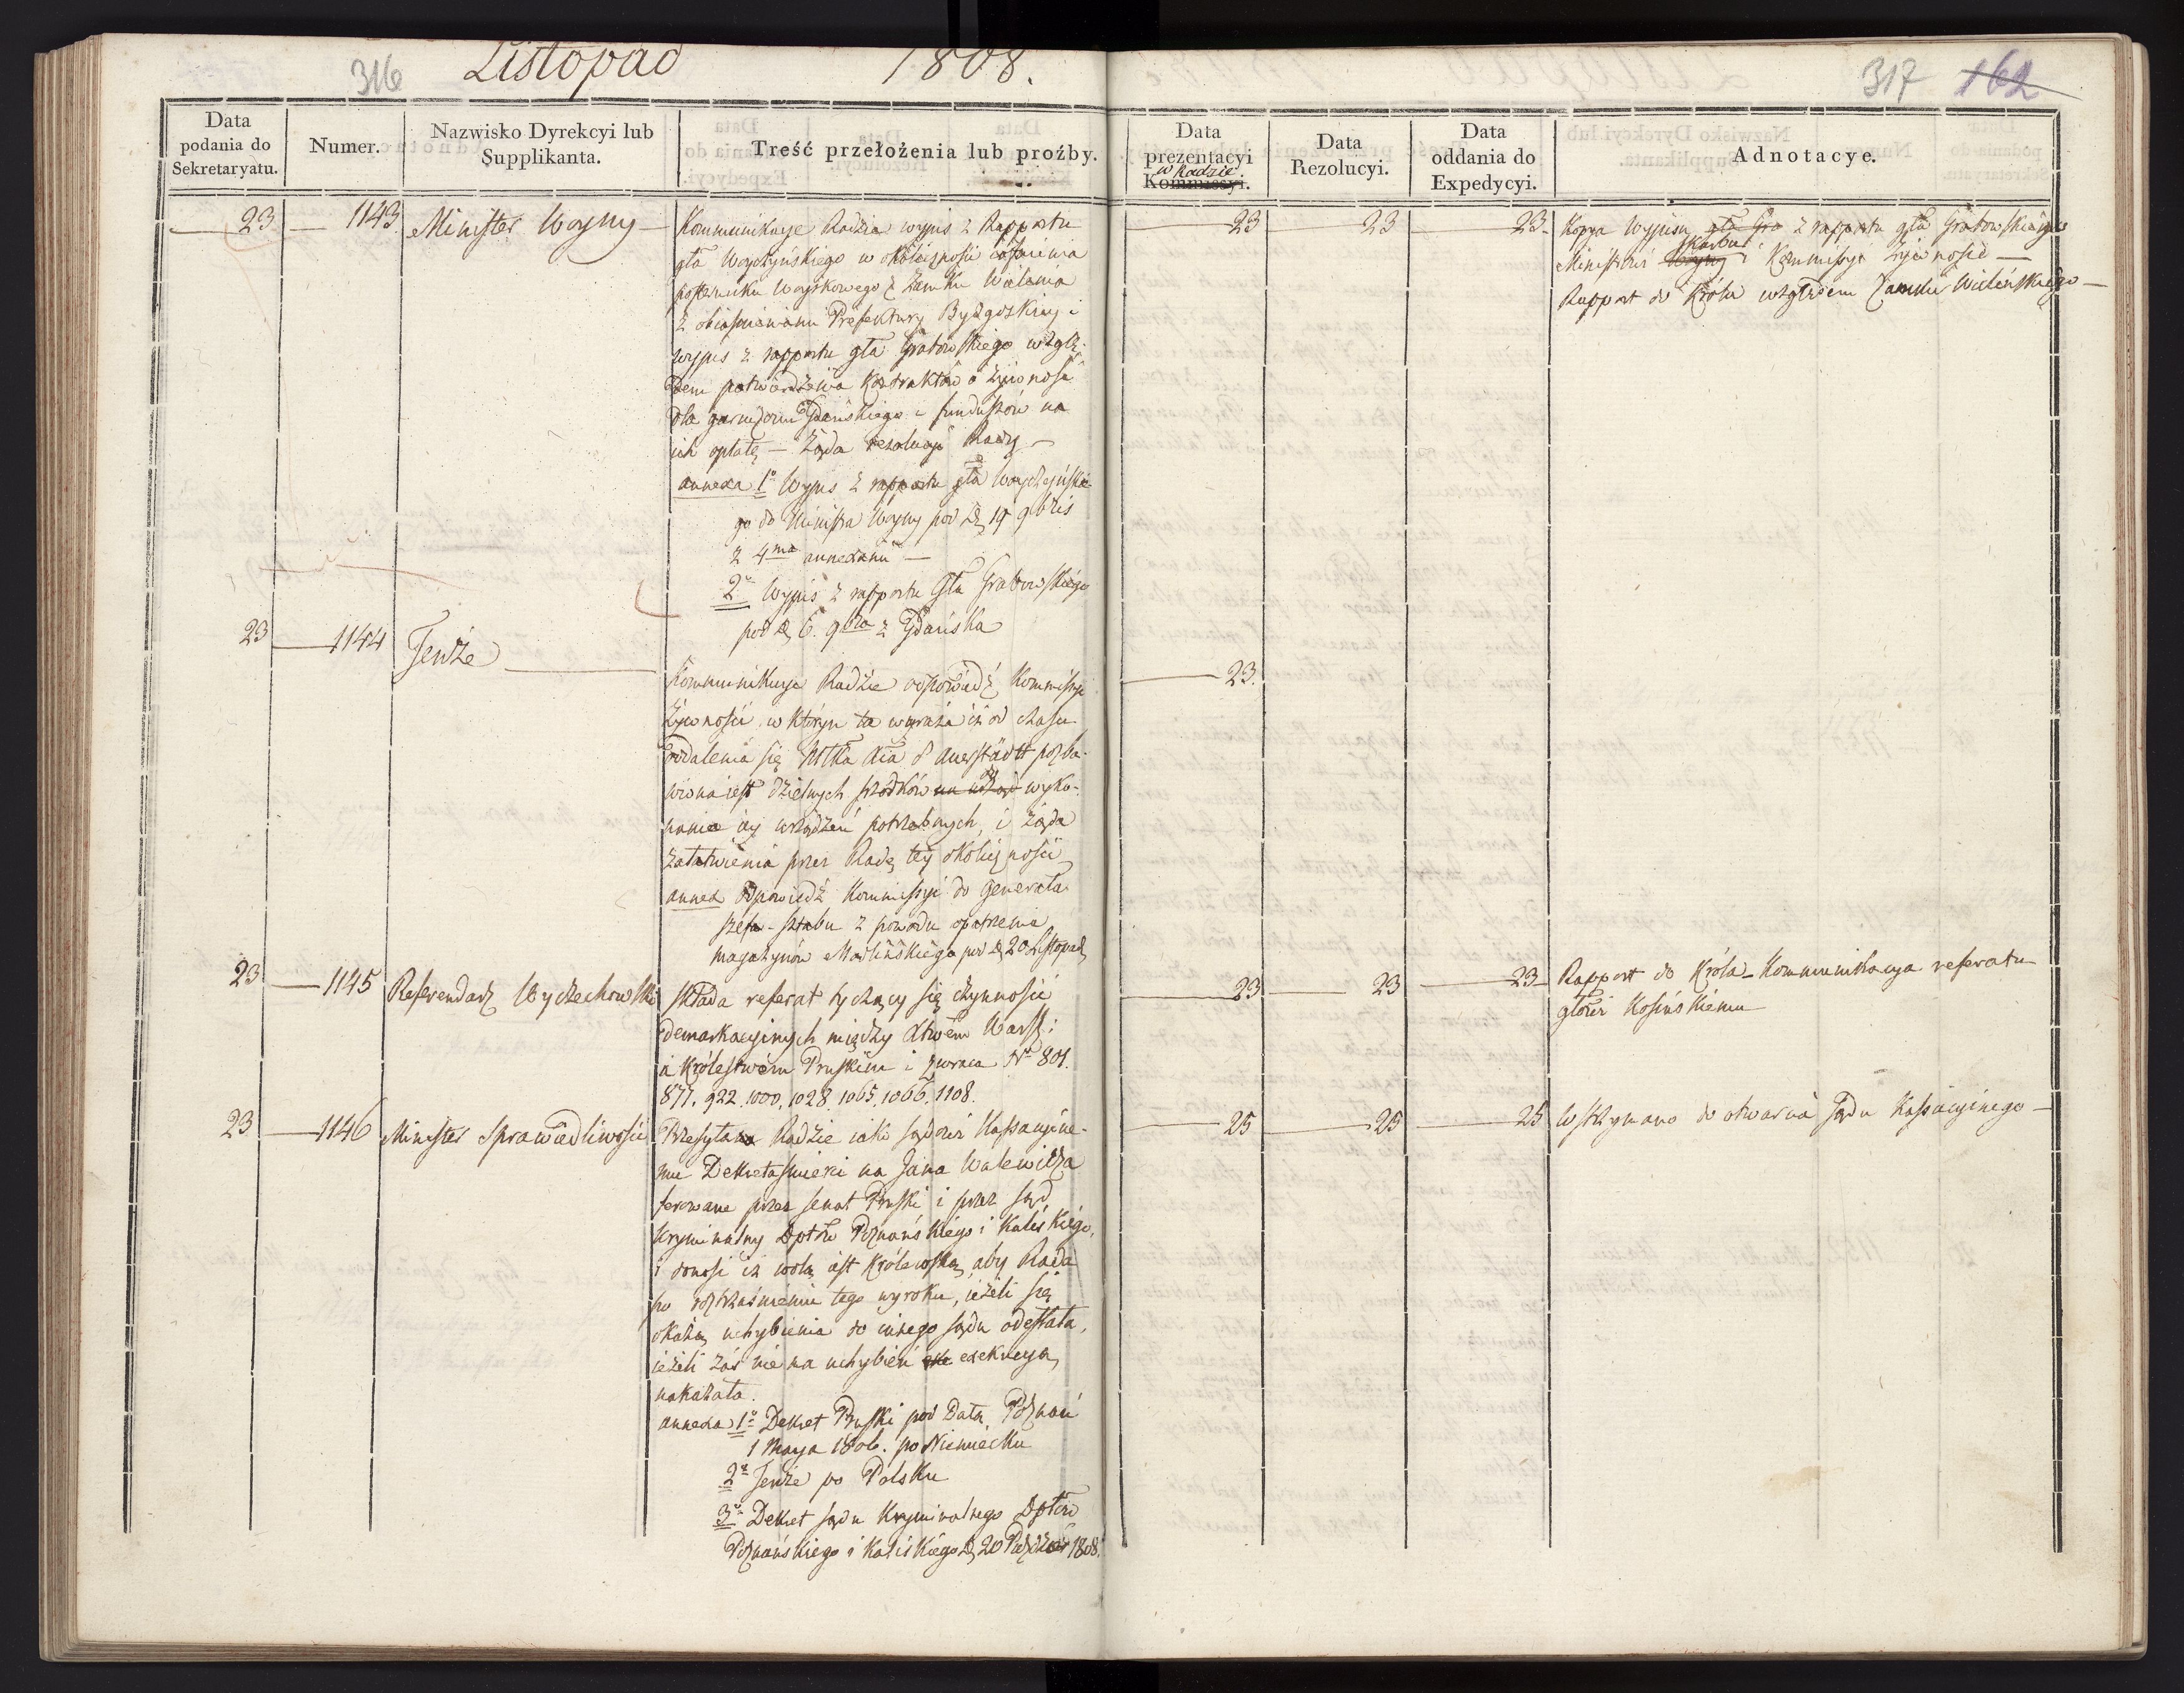 316 Listopad 1808.
Data podania do Sekretaryatu.
Numer.
Nazwisko Dyrekcyi lub Supplikanta.
Treść przełożenia lub proźby.
23 1143. Minister Woyny
Kommunikuye Radzie wypis z Rapportu
gła Woyczyńskiego w okoliczności
posterunku Woyskowego z Zamku Wielenia
z obiaśnieniami Prefektury Bydgoskiey i
wypis z rapportu gła Grabowskiego wzglę-
dem potwierdzenia Kontraktów o żywność
dla garnizonu Gdańskiego i funduszów na
ich opłatę — Żąda rezolucyi Rady —
annexa 1° Wypis z rapportu gła Woyczyńskie-
go do Ministra Woyny pod D 19 9bris
z 4ma annexami —
2° Wypis z rapportu Gła Grabowskiego
pod D 6. 9bra z Gdańska
23 1144 Tenże
Kommunikuye Radzie odpowiedź Kommissyi
Żywności w którym ta wyraża iż od czasu
oddalenia się Młka Xia d'Auerstädt pozba-
wiona iest dzielnych środków do wyko-
nania iey urządzeń potrzebnych, i żąda
załatwienia przez Radę tey okoliczności
annex Odpowiedź Kommissyi do Generała
szefa-sztabu z powodu opatrzenia
magazynów Modlińskiego pod D 20 Listopad
23 1145 Referendarz Wyczechowski
składa referat tyczący się czynności
demarkacyinych między Xtwem Warsz:
a Królestwem Pruskim i zwraca Nr 801.
877. 922. 1000. 1028. 1065. 1066. 1108.
23 1146 Minister Sprawiedliwości
Przesyła Radzie iako sądowi Kassacyine-
mu Dekreta śmierci na Jana Walewicza
ferowane przez senat Pruski i przez sąd
kryminalny Dpttów Poznańskiego i Kaliskiego,
i donosi iż wolą iest Królewską aby Rada
po roztrząśnieniu tego wyroku, ieżeli się
okażą uchybienia do innego sądu odesłała,
ieżeli zaś nie ma uchybień exekucyą
nakazała.
annexa 1° Dekret Pruski pod Datą Poznań
1 Maya 1806. po Niemiecku
2° Tenże po Polsku
3° Dekret sądu Kryminalnego Dpttów
Poznańskiego i Kaliskiego D 20 1808.
317 162
Data prezentacyi w Radzie Kommissyi.
Data Rezolucyi.
Data oddania do Expedycyi.
Adnotacye.
23 23 23. Kopya Wypisu gła Gra z rapportu gła Grabowskiego
Ministrowi Woyny Skarbu i Kommissyi Żywności —
Rapport do Króla względem Zamku Wieleńskiego —
23.
23 23 23 Rapport do Króla – Kommunikacya referatu
głowi Kosińskiemu
25 25 25 Wstrzymano do otwarcia Sądu Kassacyinego —